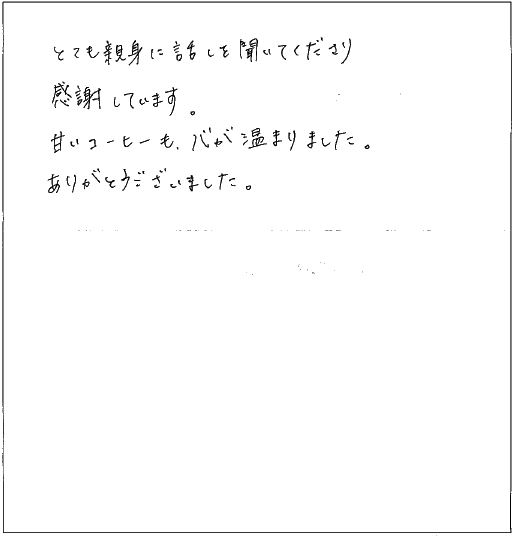 とても親身に話しを聞いてくださり
感謝しています。
甘いコーヒーも、心が温まりました。
ありがとうございました。